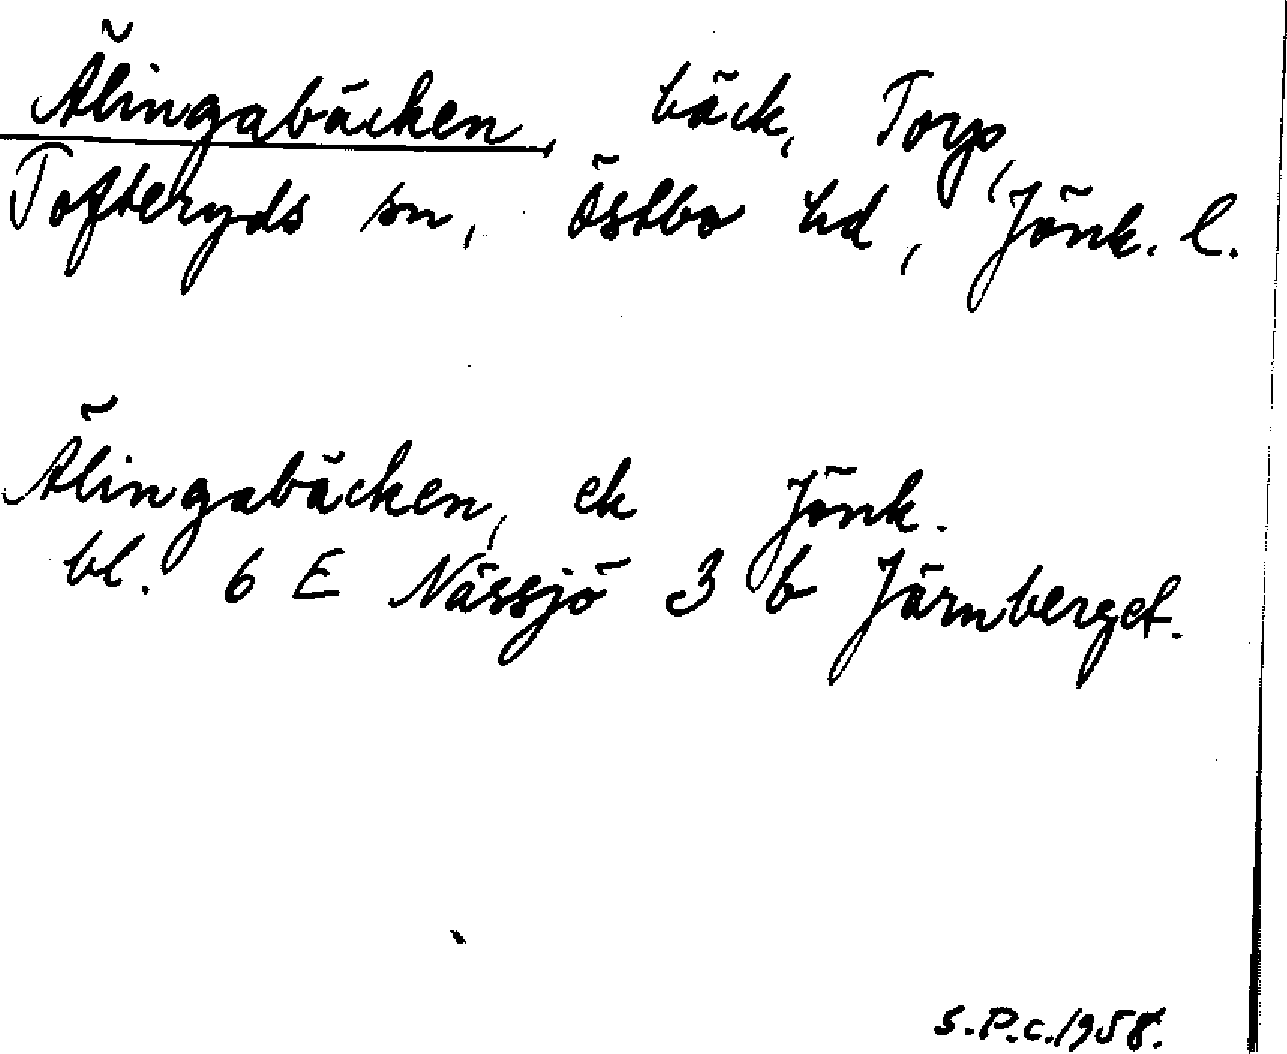 Älingabäcken, bäck, Torp,
Tofteryds sn, Östbo hd, Jönk. l.
Älingabäcken, ek Jönk.
bl. 6 E Nässjö 3 b Järnberget.
S.P.C. 1958.